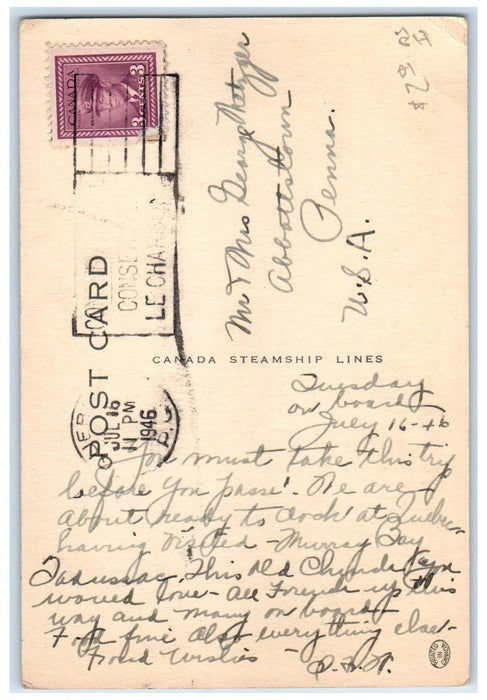 CANADA
3 CENTS 3
CONSE
LE CHARB
POST CARD
JUL 16
11 PM
1946
P.Q.
Mr & Mrs George Metzger
Abbottstown
Penna.
U.S.A.
CANADA STEAMSHIP LINES
Tuesday
on board
July 16-46
You must take this trip
before you passe'. We are
about ready to dock at Quebec
having visited - Murray Bay
Tadussac This Old Church
would love - all French up this
way and many on board
Food fine also everything else -
Good Wishes
PRINTED IN CANADA